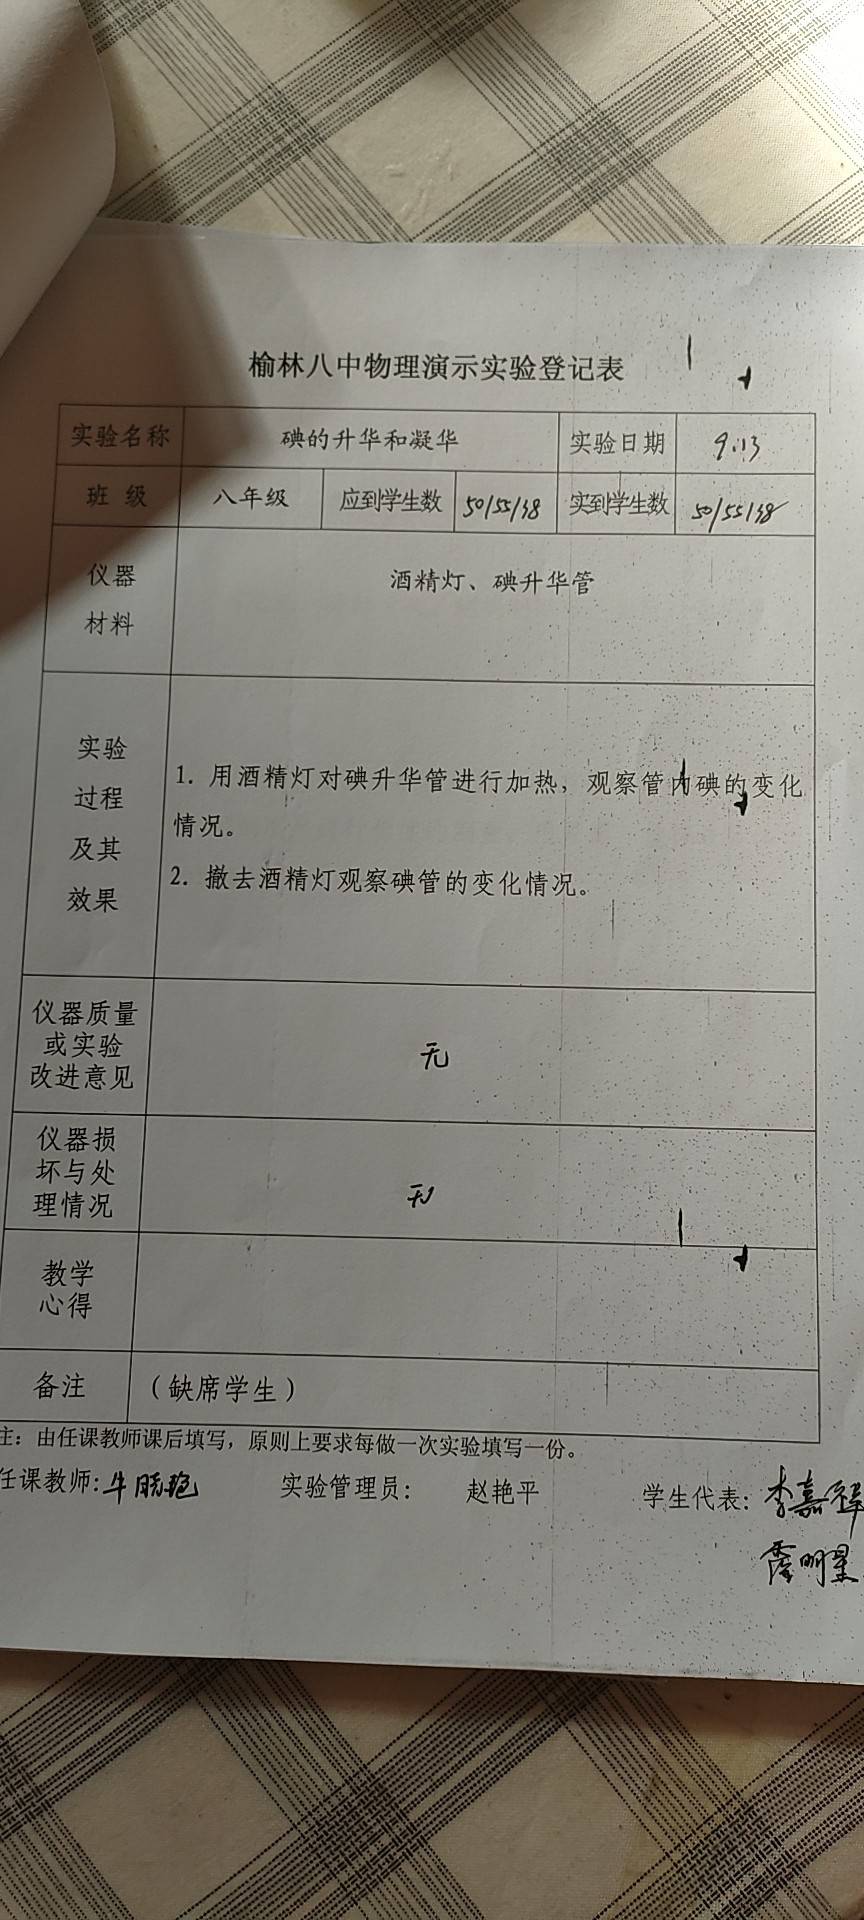 榆林八中物理演示实验登记表
实验名称 碘的升华和凝华 实验日期 9.13
班 级 八年级 应到学生数 50/55/48 实到学生数 50/55/48
仪器
材料
酒精灯、碘升华管
实验
过程
及其
效果
1. 用酒精灯对碘升华管进行加热，观察管内碘的变化
情况。
2. 撤去酒精灯观察碘管的变化情况。
仪器质量
或实验
改进意见
无
仪器损
坏与处
理情况
无
教学
心得
备注 （缺席学生）
注：由任课教师课后填写，原则上要求每做一次实验填写一份。
任课教师：牛晓艳 实验管理员： 赵艳平 学生代表：李嘉祥
明星